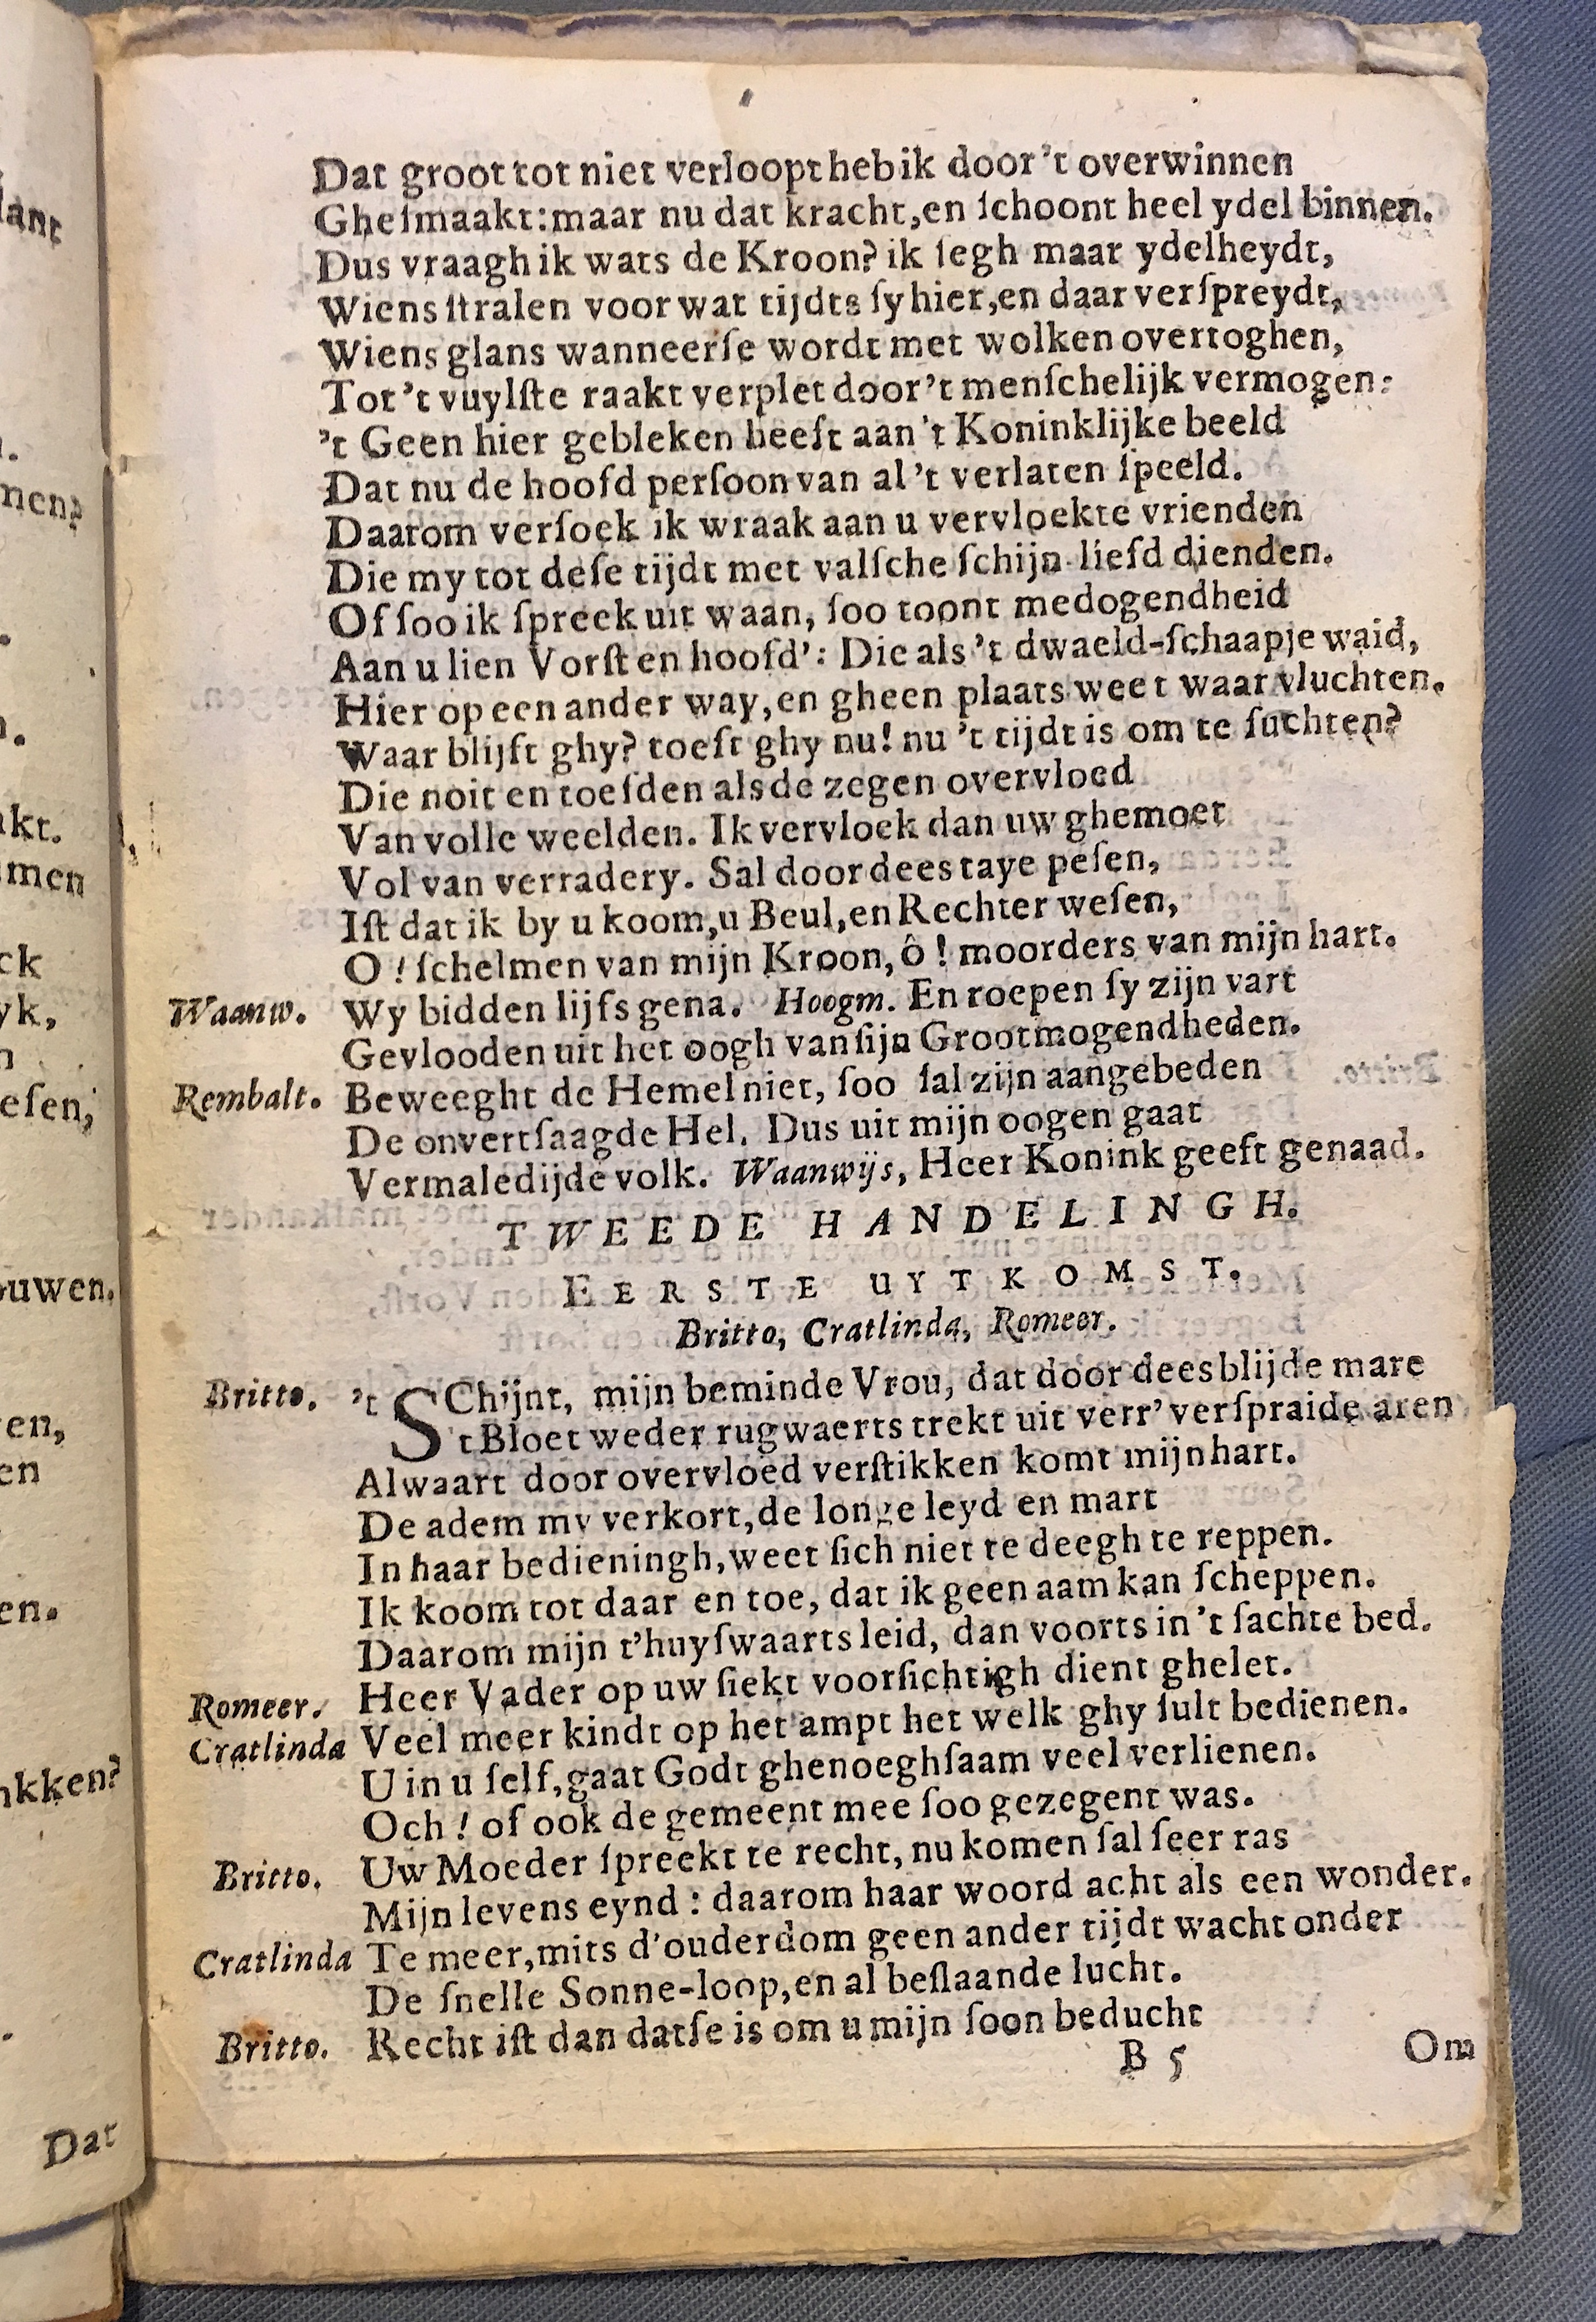 Dat groot tot niet verloopt heb ik door 't overwinnen
Gheſmaakt: maar nu dat kracht, en ſchoont heel ydel binnen.
Dus vraagh ik wats de Kroon? ik ſegh maar ydelheydt,
Wiens ſtralen voor wat tijdts ſy hier, en daar verſpreydt,
Wiens glans wanneerſe wordt met wolken overtoghen,
Tot 't vuylſte raakt verplet door 't menſchelijk vermogen:
't Geen hier gebleken heeft aan 't Koninklijke beeld
Dat nu de hoofd perſoon van al 't verlaten ſpeeld.
Daarom verſoek ik wraak aan u vervloekte vrienden
Die my tot deſe tijdt met valſche ſchijn-liefd dienden.
Of ſoo ik ſpreek uit waan, ſoo toont medogendheid
Aan u lien Vorſt en hoofd': Die als 't dwaeld-ſchaapje waid,
Hier op een ander way, en gheen plaats weet waar vluchten.
Waar blijft ghy? toeft ghy nu! nu 't tijdt is om te ſuchten?
Die noit en toefden als de zegen overvloed
Van volle weelden. Ik vervloek dan uw ghemoet
Vol van verradery. Sal door dees taye peſen,
Iſt dat ik by u koom, u Beul, en Rechter weſen,
O! ſchelmen van mijn Kroon, ô! moorders van mijn hart.
Waanw. Wy bidden lijfs gena. Hoogm. En roepen ſy zijn vart
Gevlooden uit het oogh van ſijn Grootmogendheden.
Rembalt. Beweeght de Hemel niet, ſoo ſal zijn aangebeden
De onvertſaagde Hel. Dus uit mijn oogen gaat
Vermaledijde volk. Waanwijs, Heer Konink geeft genaad.
TWEEDE HANDELINGH.
EERSTE UYTKOMST.
Britto, Cratlinda, Romeer.
Britto. 't SChijnt, mijn beminde Vrou, dat door dees blijde mare
't Bloet weder rugwaerts trekt uit verr' verſpraide aren
Alwaart door overvloed verſtikken komt mijn hart.
De adem my verkort, de longe leyd en mart
In haar bedieningh, weet ſich niet te deegh te reppen.
Ik koom tot daar en toe, dat ik geen aam kan ſcheppen.
Daarom mijn t'huyſwaarts leid, dan voorts in 't ſachte bed.
Romeer. Heer Vader op uw ſiekt voorſichtigh dient ghelet.
Cratlinda Veel meer kindt op het ampt het welk ghy ſult bedienen.
U in u ſelf, gaat Godt ghenoeghſaam veel verlienen.
Och! of ook de gemeent mee ſoo gezegent was.
Britto. Uw Moeder ſpreekt te recht, nu komen ſal ſeer ras
Mijn levens eynd: daarom haar woord acht als een wonder.
Cratlinda Te meer, mits d'ouderdom geen ander tijdt wacht onder
De ſnelle Sonne-loop, en al beſlaande lucht.
Britto. Recht iſt dan datſe is om u mijn ſoon beducht
B 5 Om
Dat